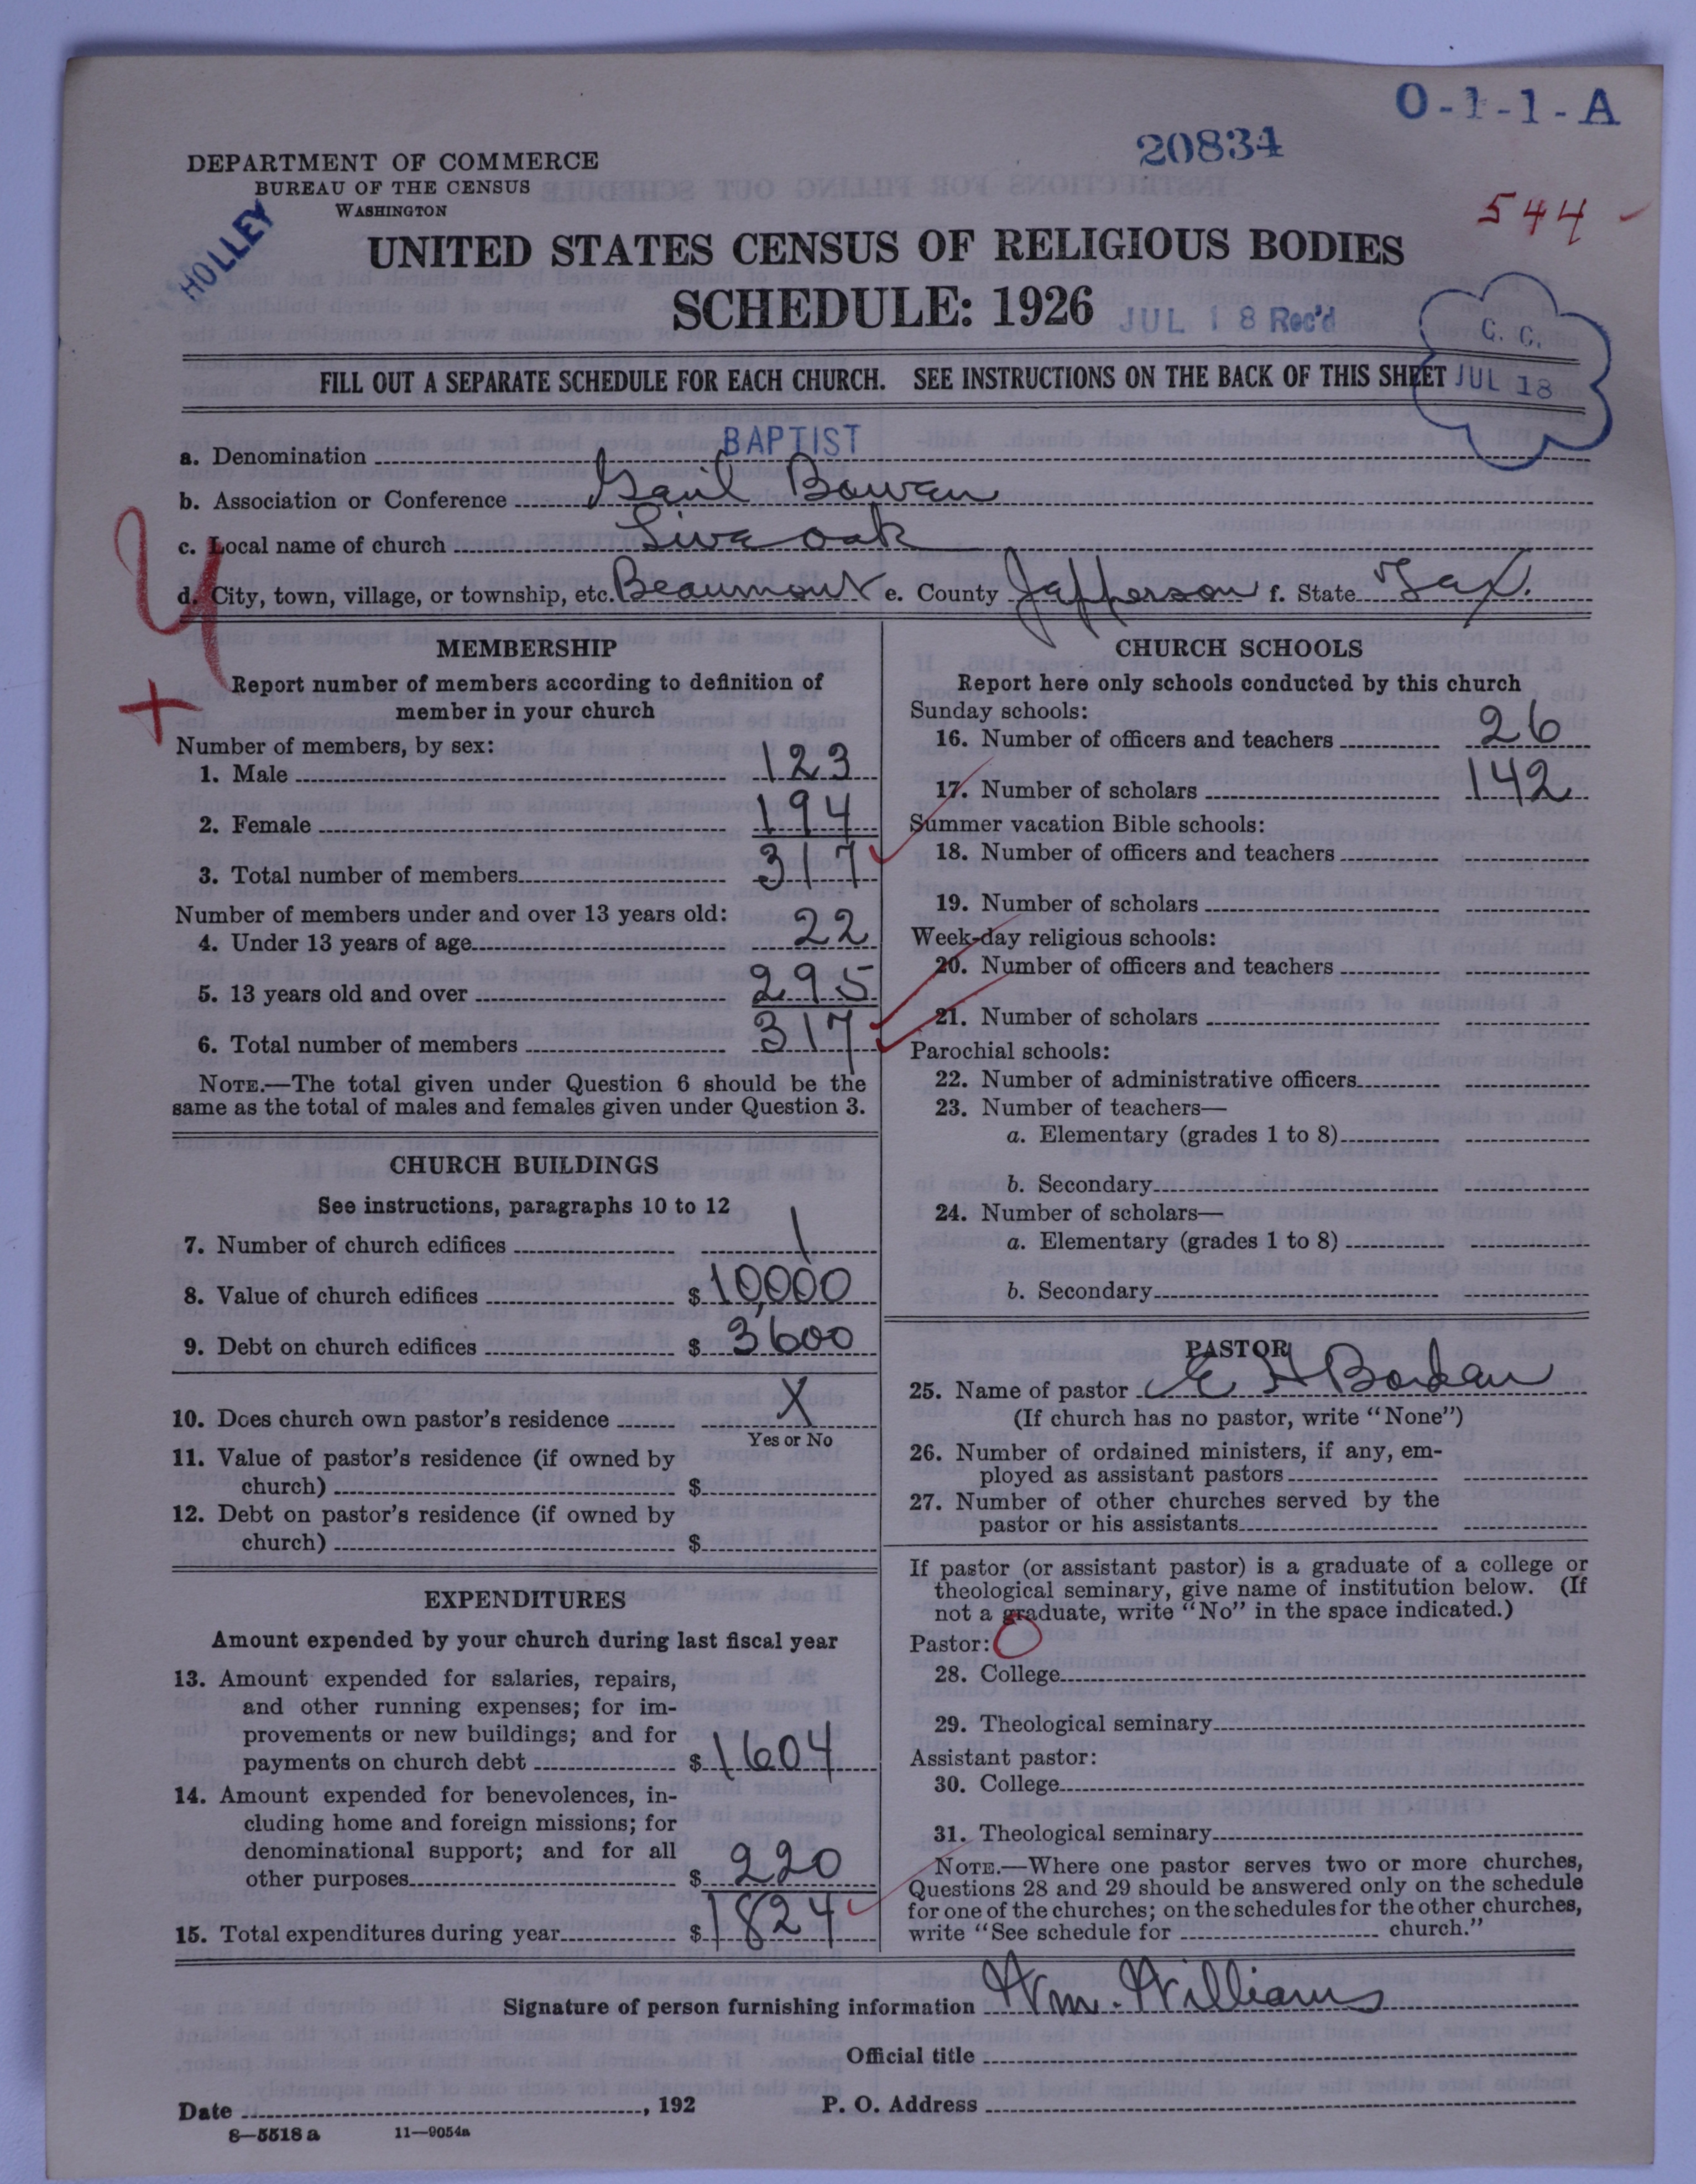 O-1-1-A
20834
DEPARTMENT OF COMMERCE
BUREAU OF THE CENSUS
WASHINGTON
HOLLEY
544
UNITED STATES CENSUS OF RELIGIOUS BODIES
SCHEDULE: 1926
JUL 18 Rec'd
C. C.
JUL 18
FILL OUT A SEPARATE SCHEDULE FOR EACH CHURCH. SEE INSTRUCTIONS ON THE BACK OF THIS SHEET
a. Denomination BAPTIST
b. Association or Conference Gail Bowen
c. Local name of church Live oak
d. City, town, village, or township, etc. Beaumont e. County Jefferson f. State Tex.
MEMBERSHIP
Report number of members according to definition of
member in your church
Number of members, by sex:
1. Male 123
2. Female 194
3. Total number of members 317
Number of members under and over 13 years old:
4. Under 13 years of age 22
5. 13 years old and over 295
6. Total number of members 317
NOTE.—The total given under Question 6 should be the
same as the total of males and females given under Question 3.
CHURCH BUILDINGS
See instructions, paragraphs 10 to 12
7. Number of church edifices 1
8. Value of church edifices $ 10,000
9. Debt on church edifices $ 3600
10. Does church own pastor's residence X
Yes or No
11. Value of pastor's residence (if owned by
church) $
12. Debt on pastor's residence (if owned by
church) $
EXPENDITURES
Amount expended by your church during last fiscal year
13. Amount expended for salaries, repairs,
and other running expenses; for im-
provements or new buildings; and for
payments on church debt $ 1604
14. Amount expended for benevolences, in-
cluding home and foreign missions; for
denominational support; and for all
other purposes $ 220
15. Total expenditures during year $ 1824
CHURCH SCHOOLS
Report here only schools conducted by this church
Sunday schools:
16. Number of officers and teachers 26
17. Number of scholars 142
Summer vacation Bible schools:
18. Number of officers and teachers
19. Number of scholars
Week-day religious schools:
20. Number of officers and teachers
21. Number of scholars
Parochial schools:
22. Number of administrative officers
23. Number of teachers—
a. Elementary (grades 1 to 8)
b. Secondary
24. Number of scholars—
a. Elementary (grades 1 to 8)
b. Secondary
PASTOR
25. Name of pastor E H Borden
(If church has no pastor, write "None")
26. Number of ordained ministers, if any, em-
ployed as assistant pastors
27. Number of other churches served by the
pastor or his assistants
If pastor (or assistant pastor) is a graduate of a college or
theological seminary, give name of institution below. (If
not a graduate, write "No" in the space indicated.)
Pastor:
28. College
29. Theological seminary
Assistant pastor:
30. College
31. Theological seminary
NOTE.—Where one pastor serves two or more churches,
Questions 28 and 29 should be answered only on the schedule
for one of the churches; on the schedules for the other churches,
write "See schedule for church."
Signature of person furnishing information Wm. Williams
Official title
Date , 192 P. O. Address
8—5518 a 11—9054a